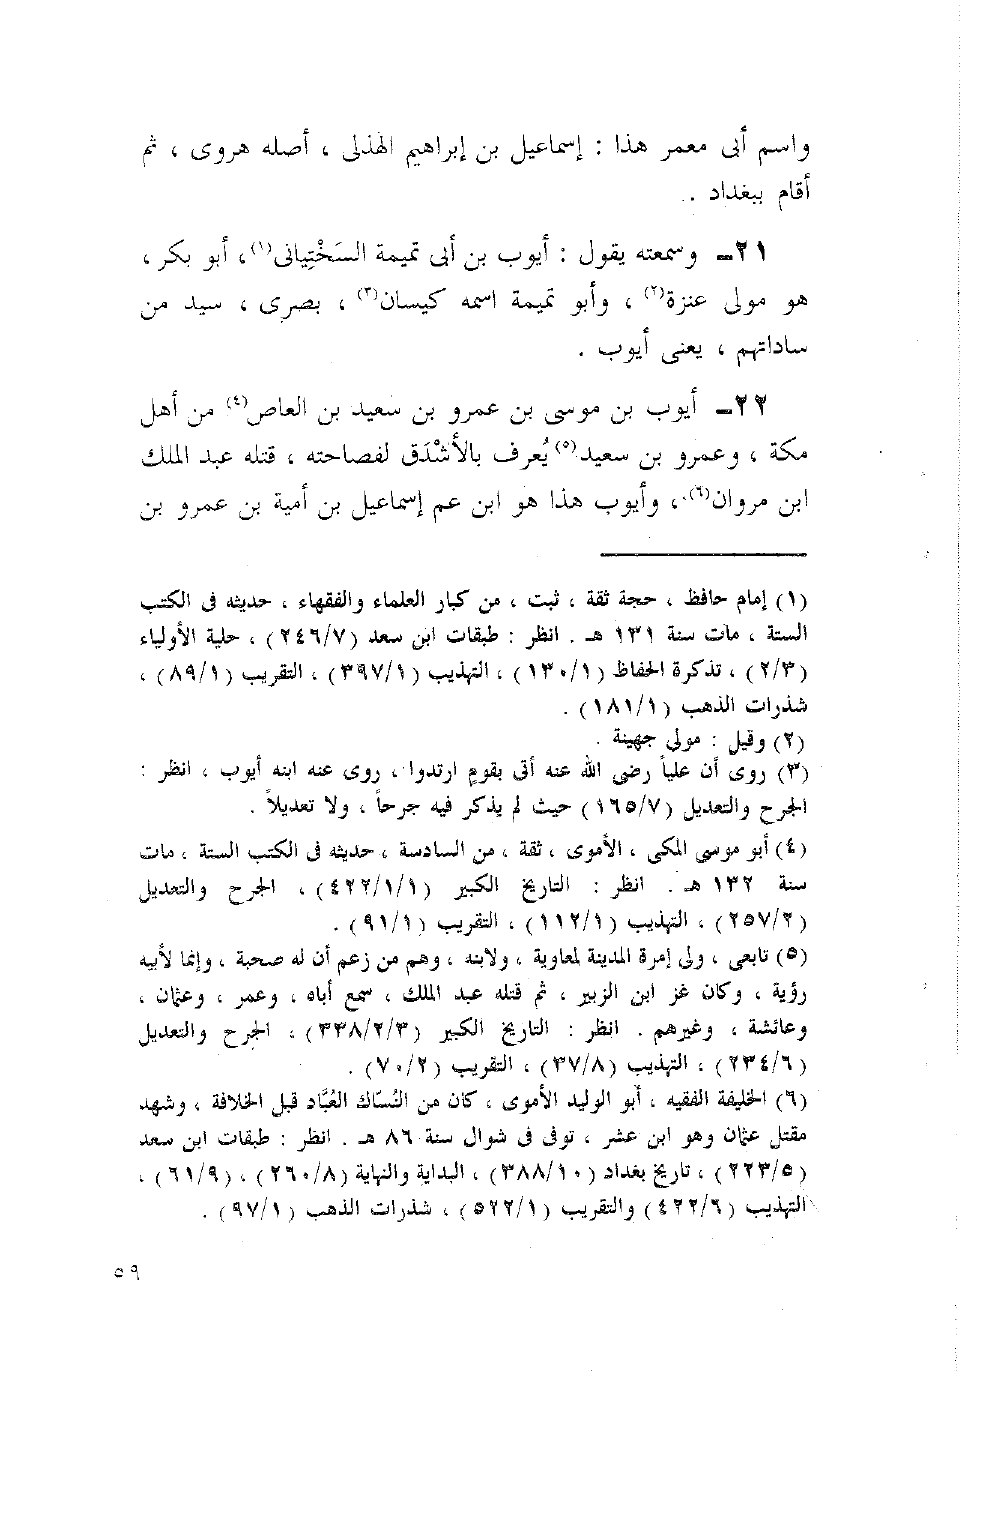 واسم أبى معمر هذا : إسماعيل بن إبراهيم الهذلى ، أصله هروى ، ثم
أقام ببغداد .
٢١ـ وسمعته يقول : أيوب بن أبى تميمة السَخْتِيانى(١)، أبو بكر ،
هو مولى عنزة(٢) ، وأبو تميمة اسمه كيسان(٣) ، بصرى ، سيد من
ساداتهم ، يعنى أيوب .
٢٢ـ أيوب بن موسى بن عمرو بن سعيد بن العاص(٤) من أهل
مكة ، وعمرو بن سعيد(٥) يُعرف بالأشْدَق لفصاحته ، قتله عبد الملك
ابن مروان(٦)، وأيوب هذا هو ابن عم إسماعيل بن أمية بن عمرو بن
(١) إمام حافظ ، حجة ثقة ، ثبت ، من كبار العلماء والفقهاء ، حديثه فى الكتب
الستة ، مات سنة ١٣١ هـ . انظر : طبقات ابن سعد (٢٤٦/٧) ، حلية الأولياء
(٢/٣) ، تذكرة الحفاظ (١٣٠/١) ، التهذيب (٣٩٧/١) ، التقريب (٨٩/١) ،
شذرات الذهب (١٨١/١) .
(٢) وقيل : مولى جهينة .
(٣) روى أن علياً رضى الله عنه أتى بقوم ارتدوا ، روى عنه ابنه أيوب ، انظر :
الجرح والتعديل (١٦٥/٧) حيث لم يذكر فيه جرحاً ، ولا تعديلاً .
(٤) أبو موسى المكى ، الأموى ، ثقة ، من السادسة ، حديثه فى الكتب الستة ، مات
سنة ١٣٢ هـ . انظر : التاريخ الكبير (٤٢٢/١/١) ، الجرح والتعديل
(٢٥٧/٢) ، التهذيب (١١٢/١) ، التقريب (٩١/١) .
(٥) تابعى ، ولى إمرة المدينة لمعاوية ، ولابنه ، وهم من زعم أن له صحبة ، وإنما لأبيه
رؤية ، وكان غز ابن الزبير ، ثم قتله عبد الملك ، سمع أباه ، وعمر ، وعثمان ،
وعائشة ، وغيرهم . انظر : التاريخ الكبير (٣٣٨/٢/٣) ، الجرح والتعديل
(٢٣٤/٦) ، التهذيب (٣٧/٨) ، التقريب (٧٠/٢) .
(٦) الخليفة الفقيه ، أبو الوليد الأموى ، كان من النُسَّاك العُبَّاد قبل الخلافة ، وشهد
مقتل عثمان وهو ابن عشر ، توفى فى شوال سنة ٨٦ هـ . انظر : طبقات ابن سعد
(٢٢٣/٥) ، تاريخ بغداد (٣٨٨/١٠) ، البداية والنهاية (٢٦٠/٨) ، (٦١/٩) ،
التهذيب (٤٢٢/٦) والتقريب (٥٢٢/١) ، شذرات الذهب (٩٧/١) .
٥٩